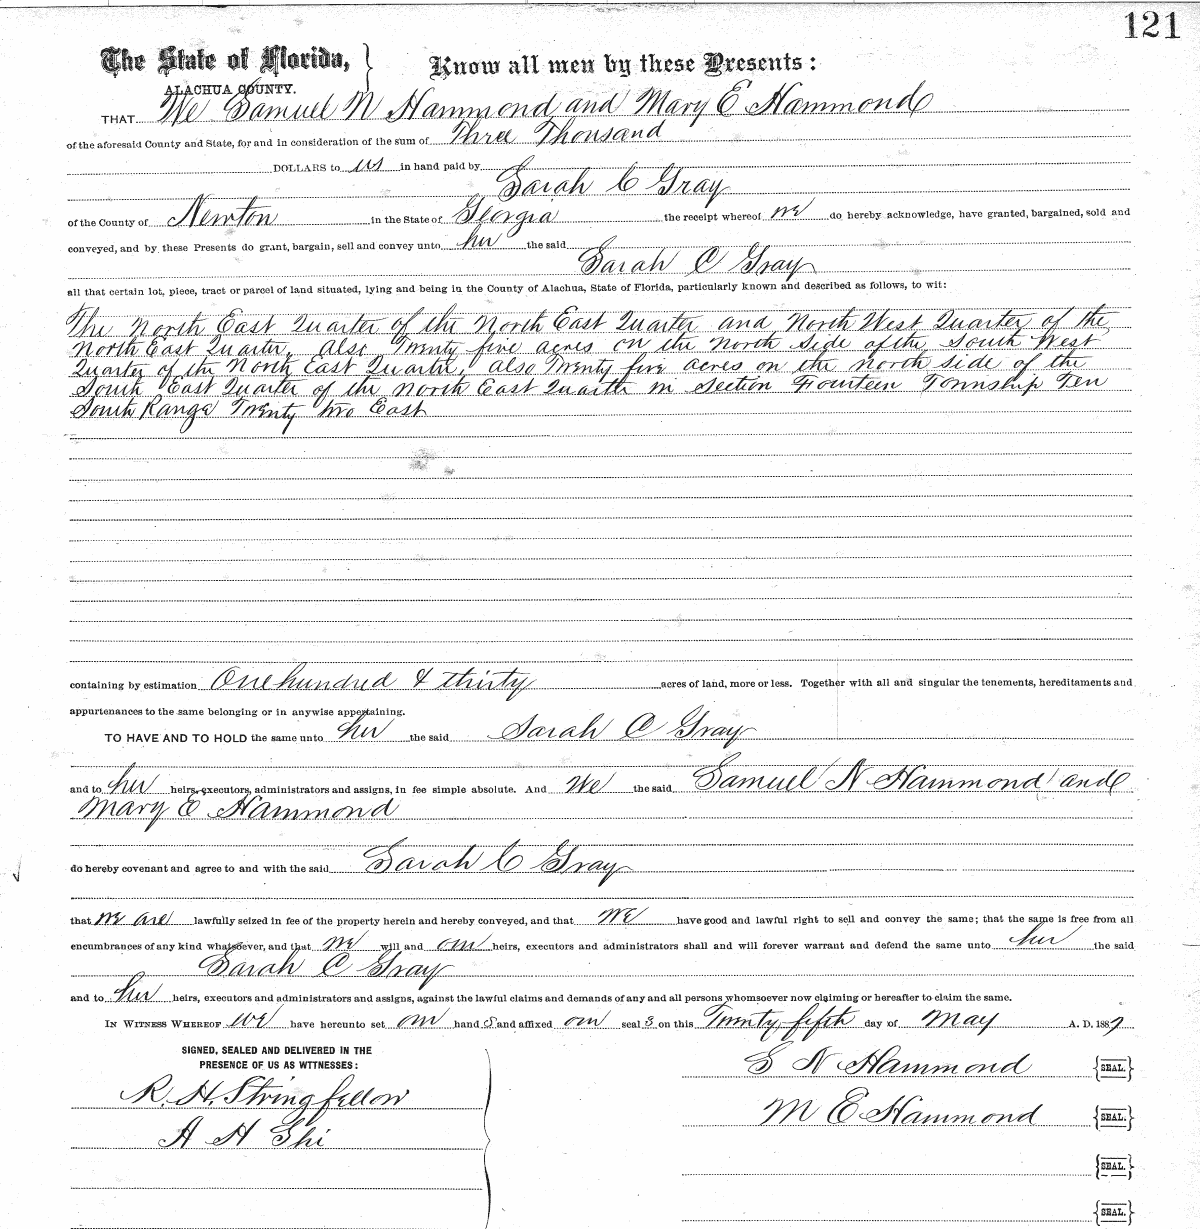 121
The State of Florida, } Know all men by these Presents:
ALACHUA COUNTY.
THAT We Samuel N Hammond and Mary E Hammond
of the aforesaid County and State, for and in consideration of the sum of Three Thousand
DOLLARS to us in hand paid by
Sarah C Gray
of the County of Newton in the State of Georgia the receipt whereof we do hereby acknowledge, have granted, bargained, sold and
conveyed, and by these Presents do grant, bargain, sell and convey unto her the said
Sarah C Gray
all that certain lot, piece, tract or parcel of land situated, lying and being in the County of Alachua, State of Florida, particularly known and described as follows, to wit:
The North East Quarter of the North East Quarter and North West Quarter of the
North East Quarter, Also Twenty five acres on the North Side of the South West
Quarter of the North East Quarter, also Twenty five acres on the north side of the
South East Quarter of the North East Quarter in Section Fourteen Township Ten
South Range Twenty two East
containing by estimation One hundred & thirty acres of land, more or less. Together with all and singular the tenements, hereditaments and
appurtenances to the same belonging or in anywise appertaining.
TO HAVE AND TO HOLD the same unto her the said Sarah C Gray
and to her heirs, executors, administrators and assigns, in fee simple absolute. And We the said Samuel N Hammond and
Mary E Hammond
do hereby covenant and agree to and with the said Sarah C Gray
that we are lawfully seized in fee of the property herein and hereby conveyed, and that we have good and lawful right to sell and convey the same; that the same is free from all
encumbrances of any kind whatsoever, and that we will and our heirs, executors and administrators shall and will forever warrant and defend the same unto her the said
Sarah C Gray
and to her heirs, executors and administrators and assigns, against the lawful claims and demands of any and all persons whomsoever now claiming or hereafter to claim the same.
IN WITNESS WHEREOF we have hereunto set our hand s and affixed our seal s on this Twenty fifth day of May A. D. 1887
SIGNED, SEALED AND DELIVERED IN THE
PRESENCE OF US AS WITNESSES:
S N Hammond {SEAL.}
R. H. Stringfellow
M E Hammond {SEAL.}
A H
{SEAL.}
{SEAL.}